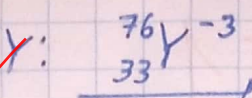 Y: ⁷⁶₃₃Y⁻³